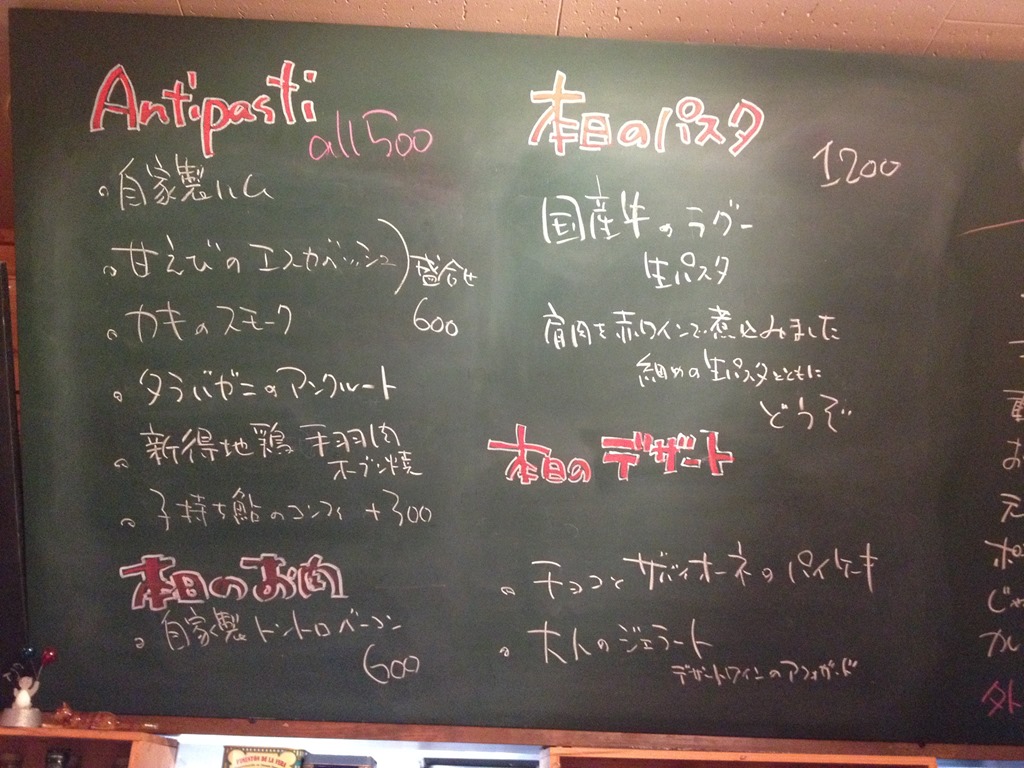 Antipasti
all 500
自家製ハム
甘えびのエスカベッシュ
盛合せ
600
カキのスモーク
タラバガニのアンクルート
新得地鶏 手羽肉
オーブン焼
子持ち鮎のコンフィ +300
本日のお肉
自家製トントロベーコン
600
本日のパスタ
1200
国産牛のラグー
生パスタ
肩肉を赤ワインで煮込みました
細めの生パスタとともに
どうぞ
本日のデザート
チョコとザバイオーネのパイケーキ
大人のジェラート
デザートワインのアフォガード
外